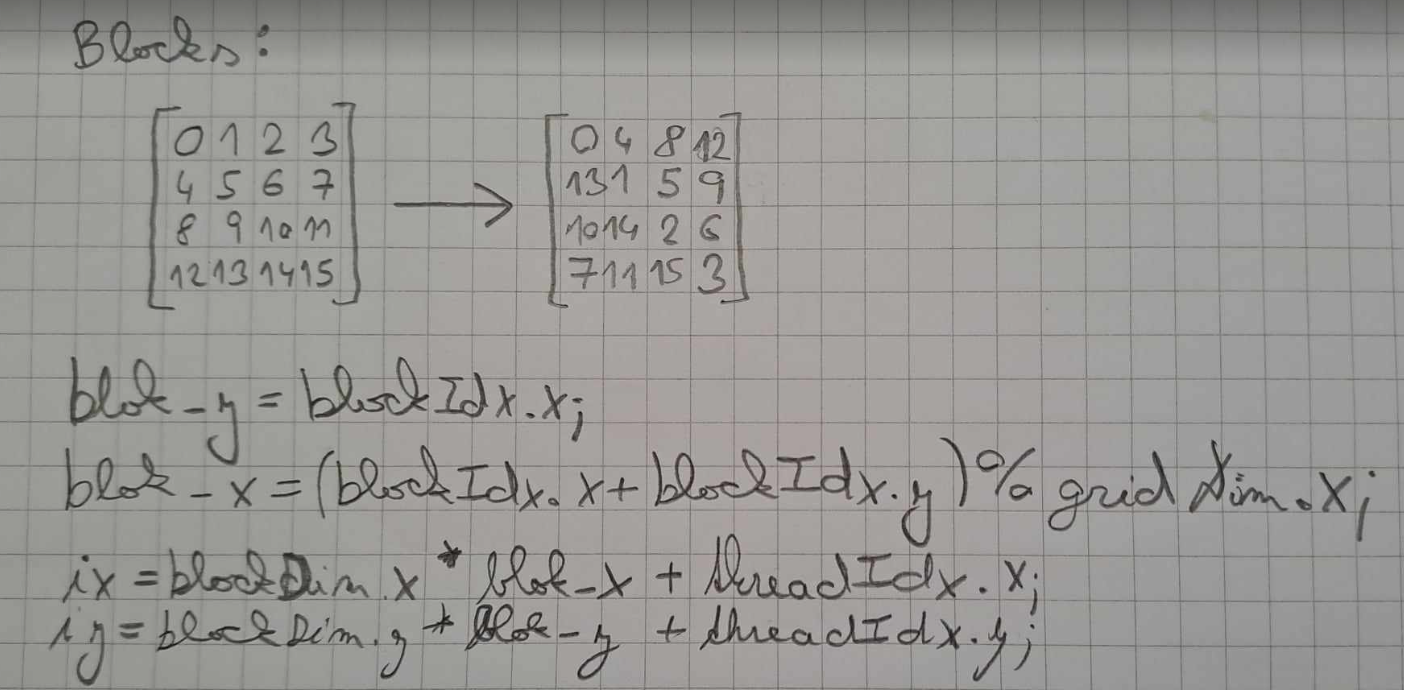 Blocks:
[0 1 2 3] → [0 4 8 12]
[4 5 6 7] [13 1 5 9]
[8 9 10 11] [10 14 2 6]
[12 13 14 15] [7 11 15 3]
blok-y = blockIdx.x;
blok-x = (blockIdx.x + blockIdx.y) % gridDim.x;
ix = blockDim.x * blok-x + threadIdx.x;
iy = blockDim.y * blok-y + threadIdx.y;